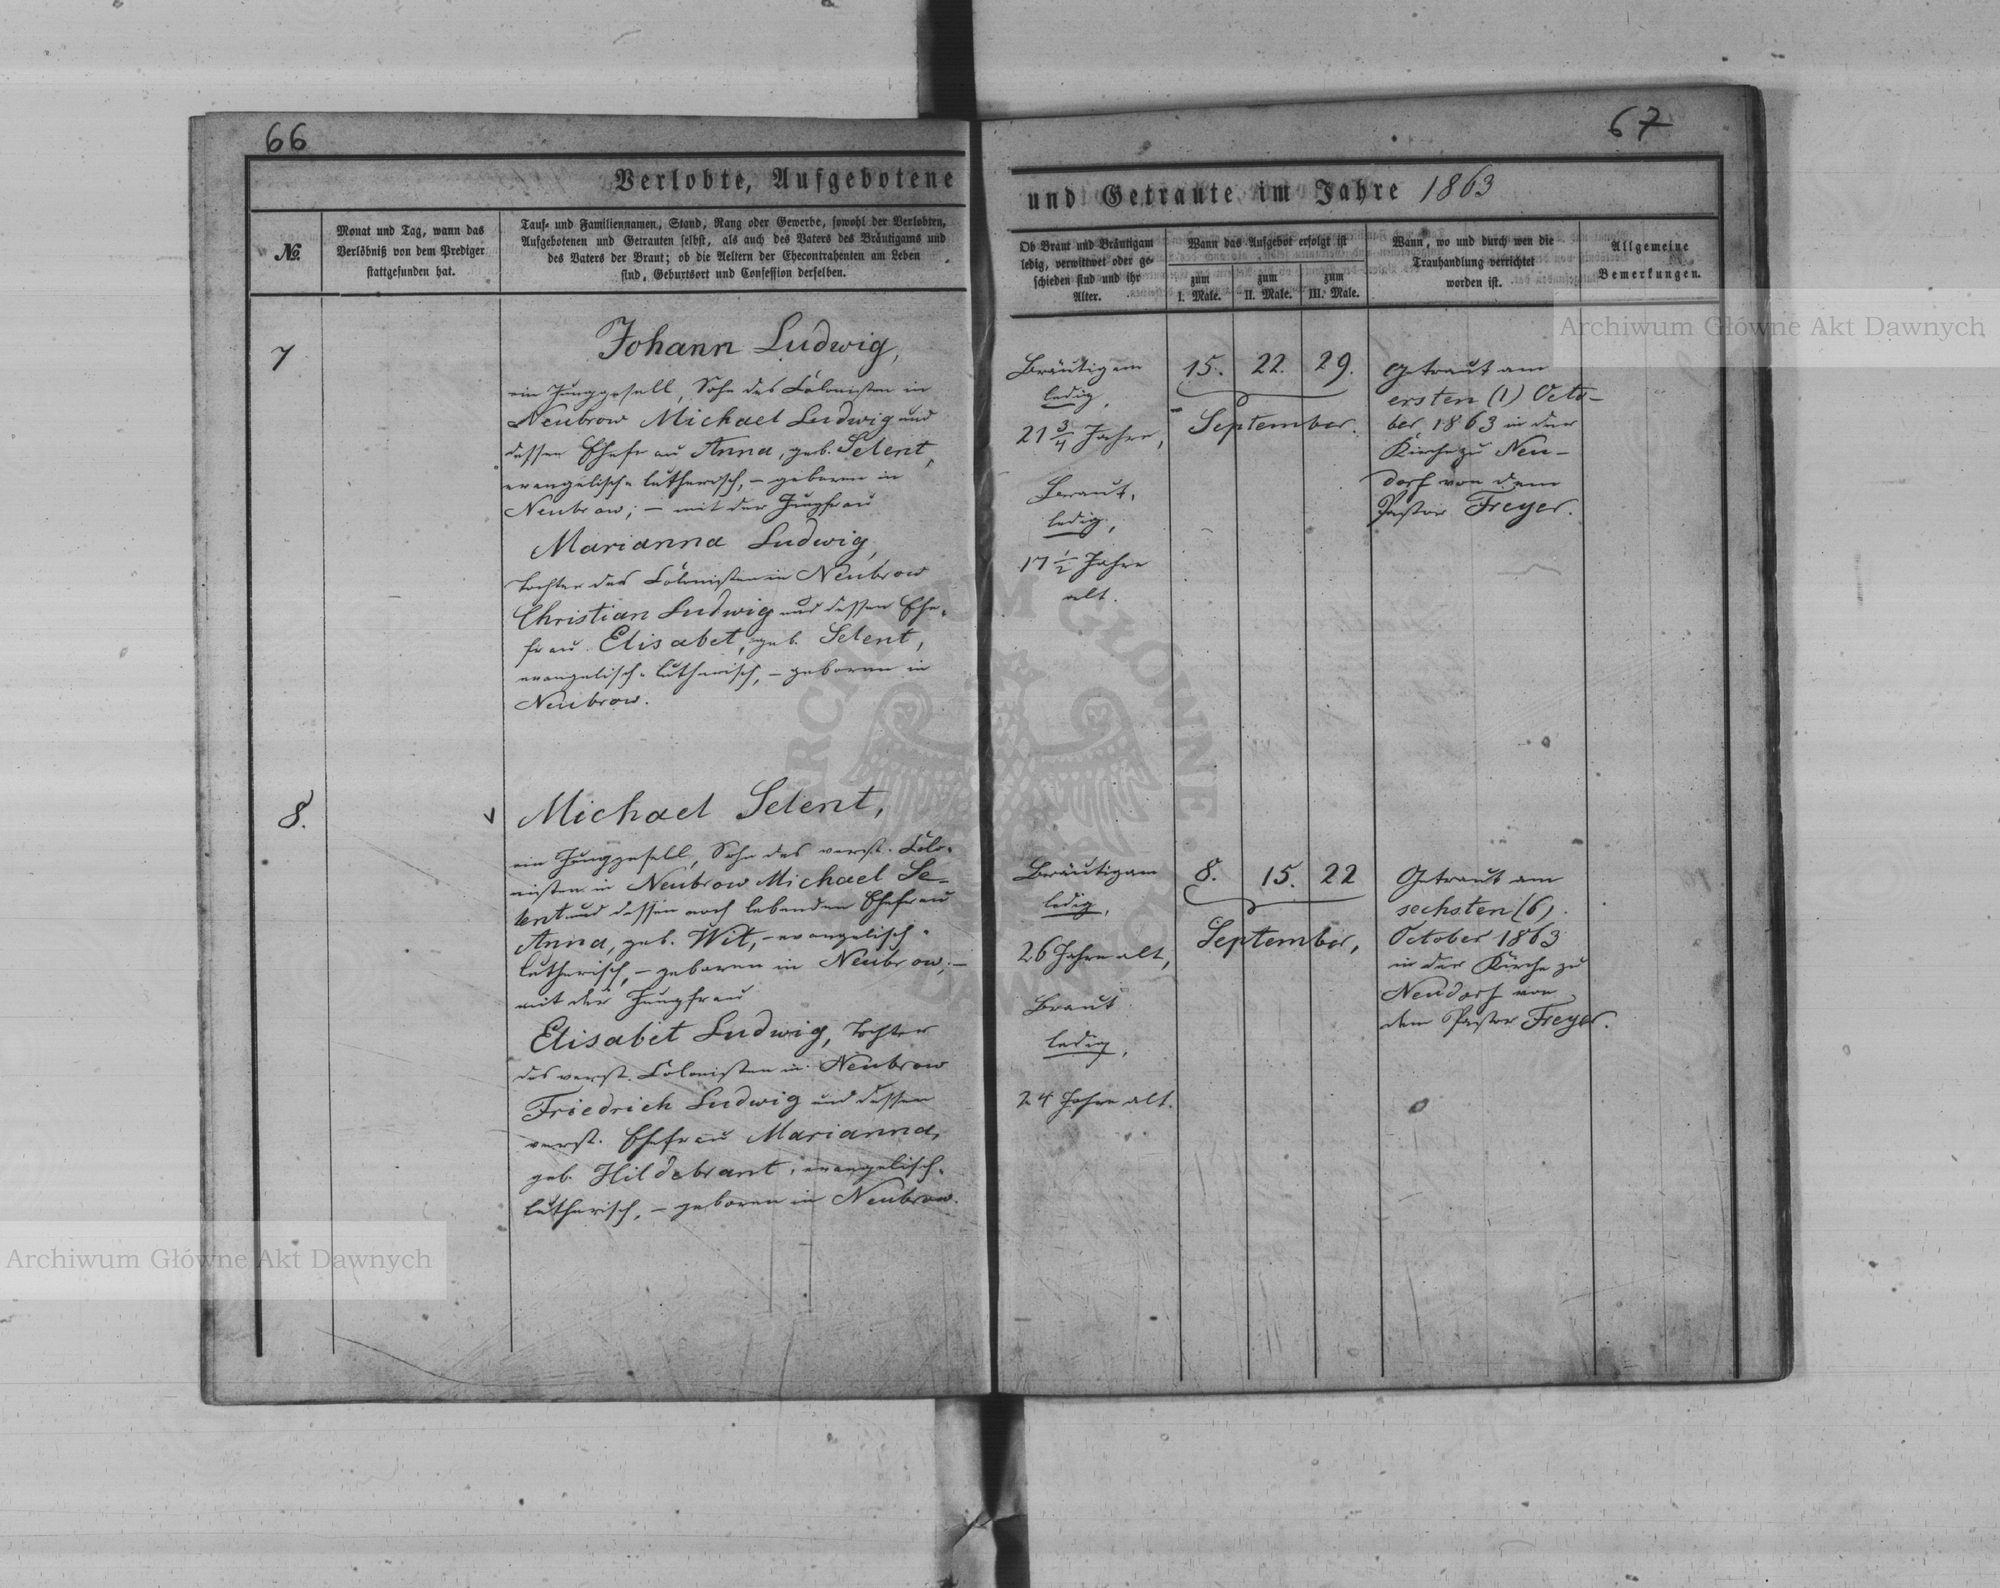 66
67
Verlobte, Aufgebotene
und Getraute im Jahre 1863
№
Monat und Tag, wann das
Verlöbniß von dem Prediger
stattgefunden hat.
Tauf- und Familiennamen, Stand, Rang oder Gewerbe, sowohl der Verlobten,
Aufgebotenen und Getrauten selbst, als auch des Vaters des Bräutigams und
des Vaters der Braut; ob die Aeltern der Ehecontrahenten am Leben
sind, Geburtsort und Confession derselben.
Ob Braut und Bräutigam
ledig, verwittwet oder ge-
schieden sind und ihr
Alter.
Wann das Aufgebot erfolgt ist
zum
I. Male.
zum
II. Male.
zum
III. Male.
Wann, wo und durch wen die
Trauhandlung verrichtet
worden ist.
Allgemeine
Bemerkungen.
7
Johann Ludwig,
ein Junggesell, Sohn des Colonisten in
Neubrow Michael Ludwig und
dessen Ehefrau Anna, geb. Selent,
evangelisch-lutherisch, – geboren in
Neubrow; – mit der Jungfrau
Marianna Ludwig,
Tochter des Colonisten in Neubrow
Christian Ludwig und dessen Ehe-
frau Elisabet, geb. Selent,
evangelisch-lutherisch, – geboren in
Neubrow.
Bräutigam
ledig,
21 3/4 Jahre,
Braut,
ledig,
17 1/2 Jahre
alt.
15. 22. 29.
September.
Getraut am
ersten (1) Octo-
ber 1863 in der
Kirche zu Neu-
dorf von dem
Pastor Freyer.
8.
Michael Selent,
ein Junggesell, Sohn des verst. Colo-
nisten in Neubrow Michael Se-
lent und dessen noch lebenden Ehefrau
Anna, geb. Wit, – evangelisch-
lutherisch, – geboren in Neubrow; –
mit der Jungfrau
Elisabet Ludwig, Tochter
des verst. Colonisten in Neubrow
Friedrich Ludwig und dessen
verst. Ehefrau Marianna,
geb. Hildebrant, evangelisch-
lutherisch, – geboren in Neubrow.
Bräutigam
ledig,
26 Jahre alt,
Braut
ledig,
24 Jahre alt.
8. 15. 22
September,
Getraut am
sechsten (6)
October 1863
in der Kirche zu
Neudorf von
dem Pastor Freyer.
Archiwum Główne Akt Dawnych
Archiwum Główne Akt Dawnych